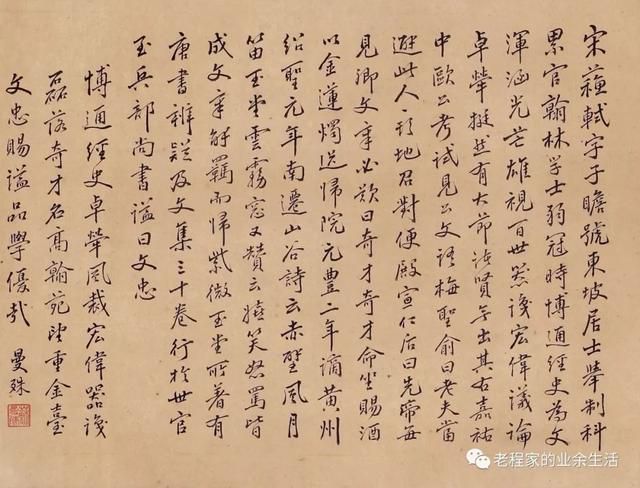 宋蘓軾字子瞻號東坡居士舉制科
累官翰林学士弱冠時博通經史為文
渾涵光芒雄視百世器識宏偉議論
卓犖挺然有大節諸賢無出其右嘉祐
中歐公考試見公文語梅聖俞曰老夫當
避此人一地召對便殿宣仁后曰先帝每
見卿文章必歎曰奇才奇才命坐賜酒
以金蓮燭送歸院元豊二年謫黄州
紹聖元年南遷山谷詩云赤壁風月
笛玉堂雲霧窓又賛云嬉笑怒罵皆
成文章解羈而歸紫微玉堂所著有
唐書辨疑及文集三十卷行於世官
至兵部尚書謚曰文忠
博通經史卓犖風裁宏偉器識
磊落奇才名髙翰苑望重金臺
文忠賜謚品學優哉 曼殊
老程家的业余生活